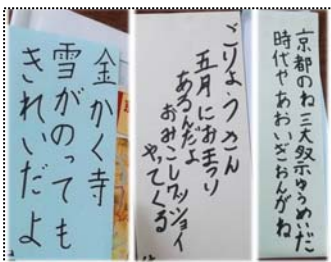 金かく寺
雪がのっても
きれいだよ
ごりょうさん
五月におまつり
あるんだよ
おみこしワッショイ
やってくる
京都のね三大祭ゆうめいだ
時代やあおいぎおんがね